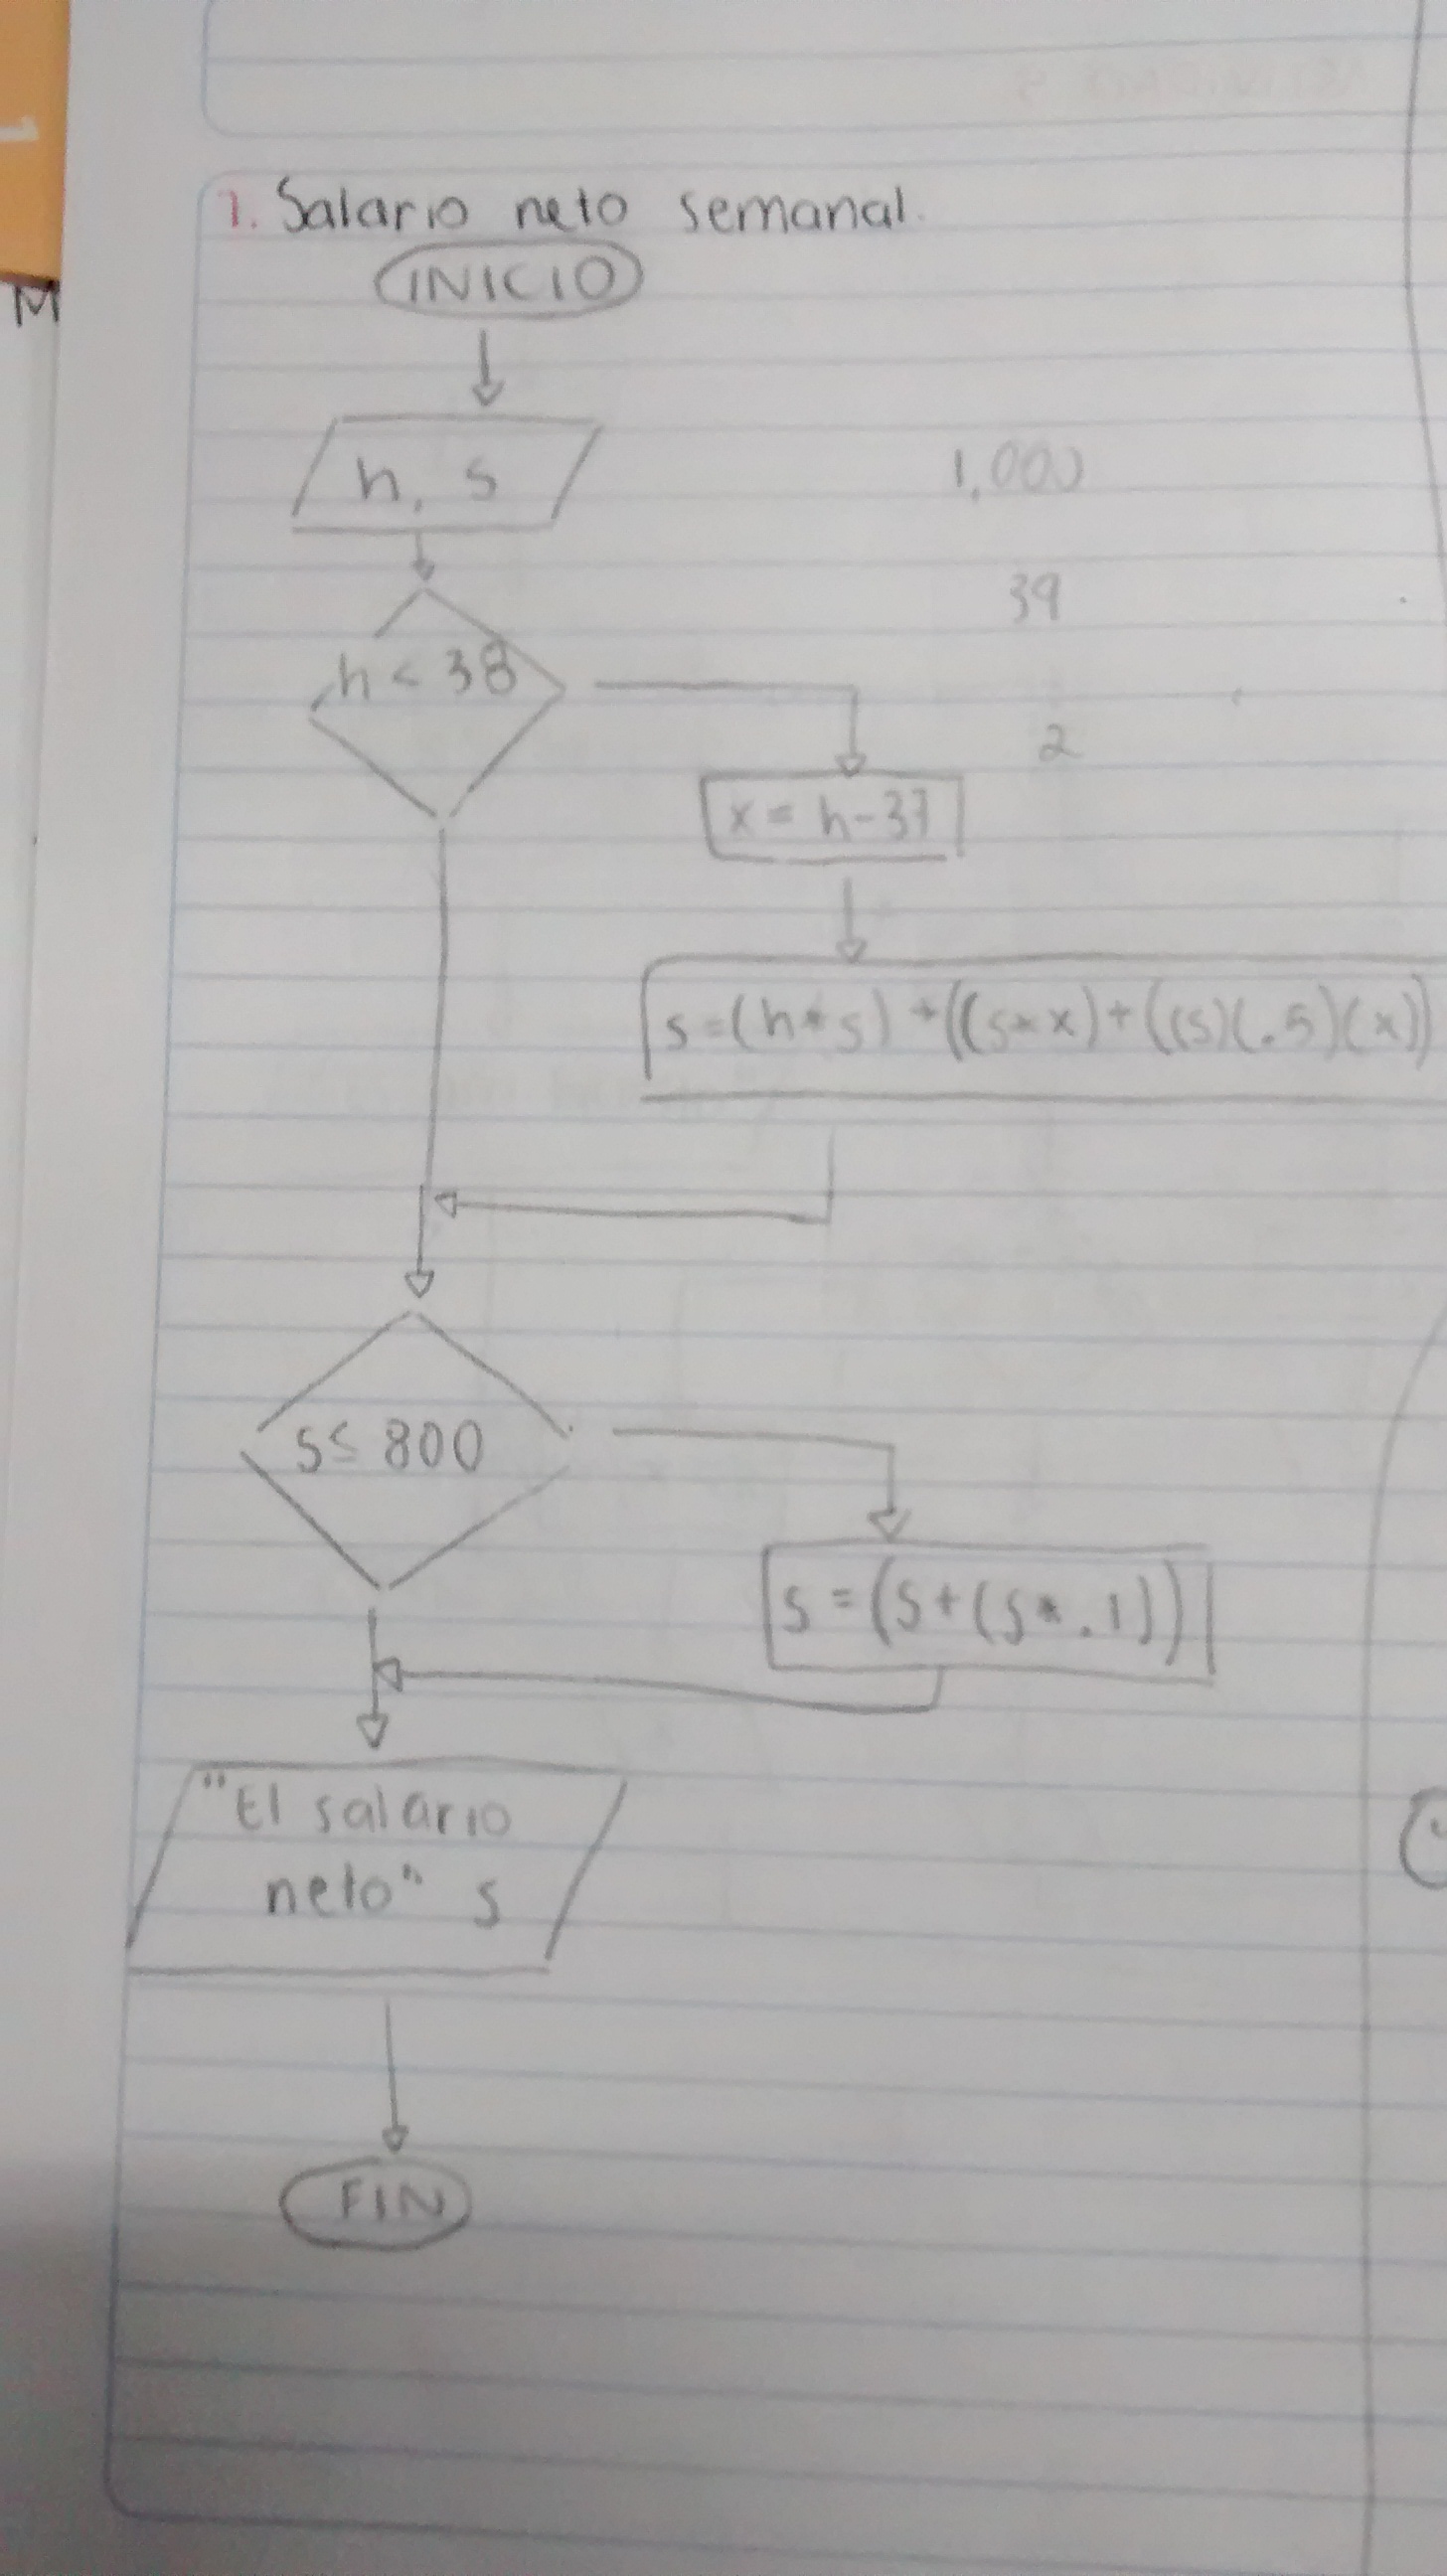 1. Salario neto semanal.
INICIO
h, s
1,000
39
h < 38
2
x = h-37
s=(h*s) +((s*x)+((s)(.5)(x))
s≤ 800
s=(s+(s*.1))
"El salario
neto" s
FIN
M
1